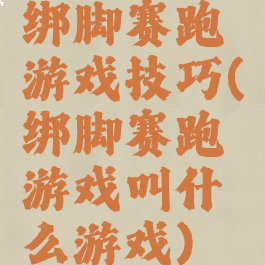 绑脚赛跑
游戏技巧(
绑脚赛跑
游戏叫什
么游戏)